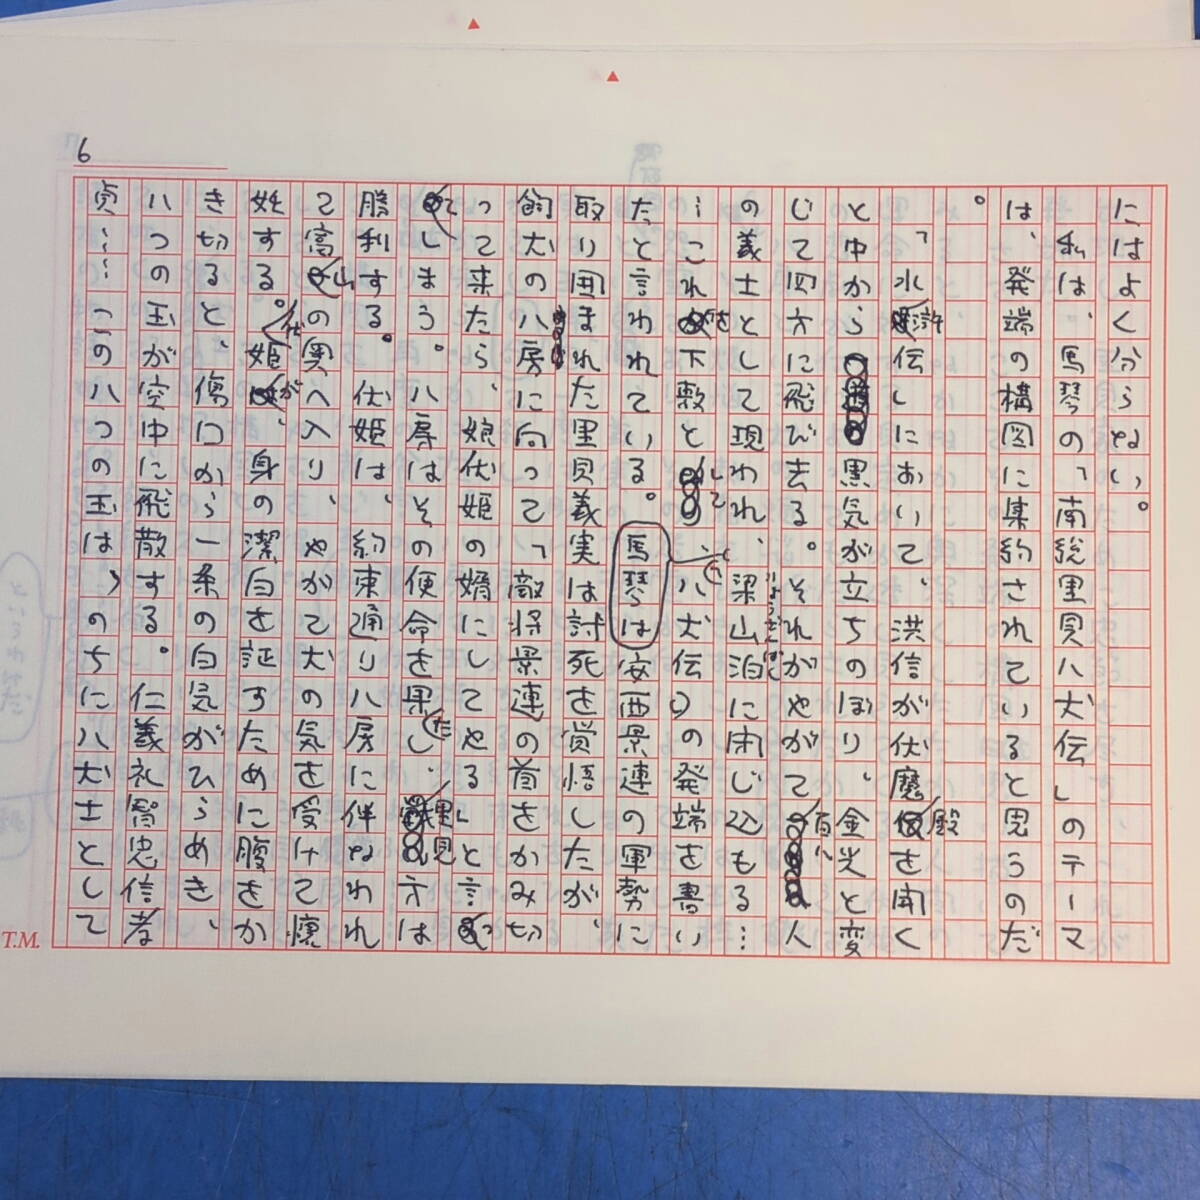 6
にはよく分らない。
私は、馬琴の「南総里見八犬伝」のテーマ
は、発端の構図に集約されていると思うのだ
。
「水滸伝」において、洪信が伏魔殿を開く
と中から黒気が立ちのぼり、金光と変
じて四方に飛び去る。それがやがて百八人
の義士として現われ、梁山泊に閉じ込もる…
りょうざんぱく
…これを下敷として、「八犬伝」の発端を書い
たと言われている。馬琴は安西景連の軍勢に
取り囲まれた里見義実は討死を覚悟したが、
飼犬の八房に向って「敵将景連の首をかみ切
って来たら、娘伏姫の婿にしてやる」と言
てしまう。八房はその使命を果たし、里見方は
勝利する。伏姫は、約束通り八房に伴なわれ
て富山の奥へ入り、やがて犬の気を受けて懐
妊する。伏姫が、身の潔白を証すために腹をか
き切ると、傷口から一条の白気がひらめき、
八つの玉が空中に飛散する。仁義礼智忠信孝
貞……この八つの玉は、のちに八犬士として
T.M.